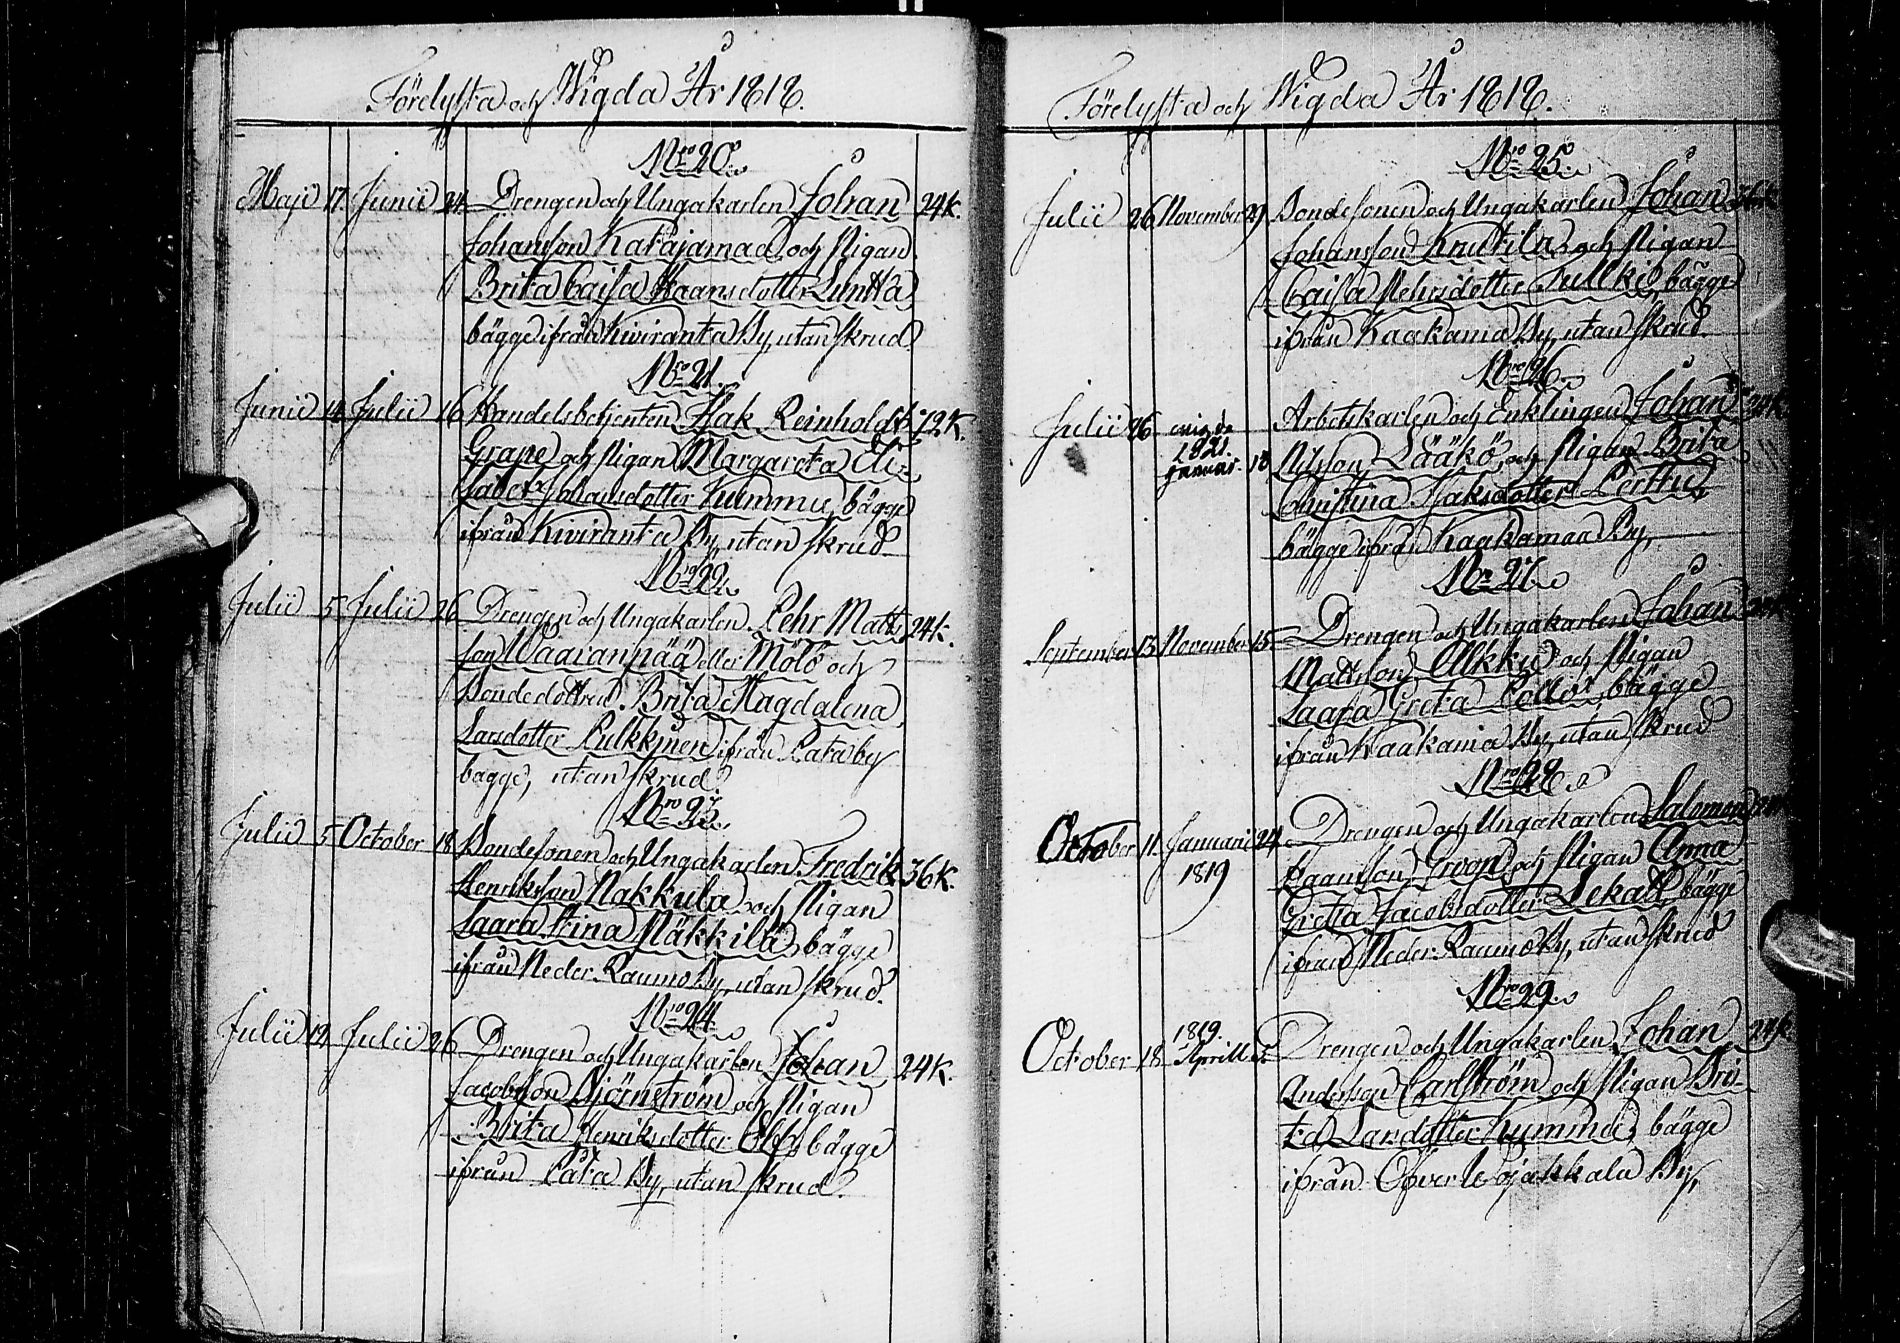 Förelysta och Wigda År 1818.
Nro 20.
Maji 17. Junii 24. Drengen och Ungakarlen Johan 24k.
Johansson Karajamaa och Pigan
Brita Caisa Haansdotter
bägge ifrån Kiviranta By, utan skrud.
Nro 21.
Junii 14 Julii 16 Handelsbetjenten Isak Reinholdt 72k.
Grape och Pigan Margareta Eli-
sabet Johansdotter Kummu, bägge
ifrån Kiviranta By, utan skrud
Nro 22.
Julii 5 Julii 26 Drengen och Ungakarlen Pehr Matts 24k.
son Waaranpää eller Mölö och
Bondedottren Brita Magdalena
Larsdotter Pulkkinen ifrån Rataby
bägge, utan skrud.
Nro 23.
Julii 5 October 18 Bondesonen och Ungakarlen Fredrik 36k.
Henriksson Nakkula och Pigan
Saara Stina Näkkilä, bägge
ifrån Neder Raumo By, utan skrud.
Nro 24.
Julii 12 Julii 26 Drengen och Ungakarlen Johan 24k.
Jacobsson Björnström och Pigan
Brita Henriksdotter bägge
ifrån By, utan skrud.
Förelysta och Wigda År 1818.
Nro 25.
Julii 26 November 29. Bondesonen och Ungakarlen Johan
Johansson Knutila och Pigan
Caisa Pehrsdotter bägge
ifrån Kaakama By, utan skrud
Nro 26.
Julii 26 Arbetskarlen och Enklingen Johan
1821.
Januar. 18 Nilsson Lääkö, och Pigan Brita
Christina Isaksdotter Perttu
bägge ifrån Kaakamaa By,
Nro 27.
September 13 November 15 Drengen och Ungakarlen Johan
Mattsson Alkku och Pigan
Saara Greta bägge
ifrån Kaakama By, utan skrud
Nro 28.
October 11. Januari 24 Drengen och Ungakarlen Salomon
1819 Haansson Groop och Pigan Anna
Greta Jacobsdotter Lekatt, bägge
ifrån Neder Raumo By, utan skrud
Nro 29.
1819.
October 18 Aprill Drengen och Ungakarlen Johan 24k.
Andersson Carlström och Pigan Bri-
ta Larsdotter Kummu, bägge
ifrån Öfver Wojakkala By,